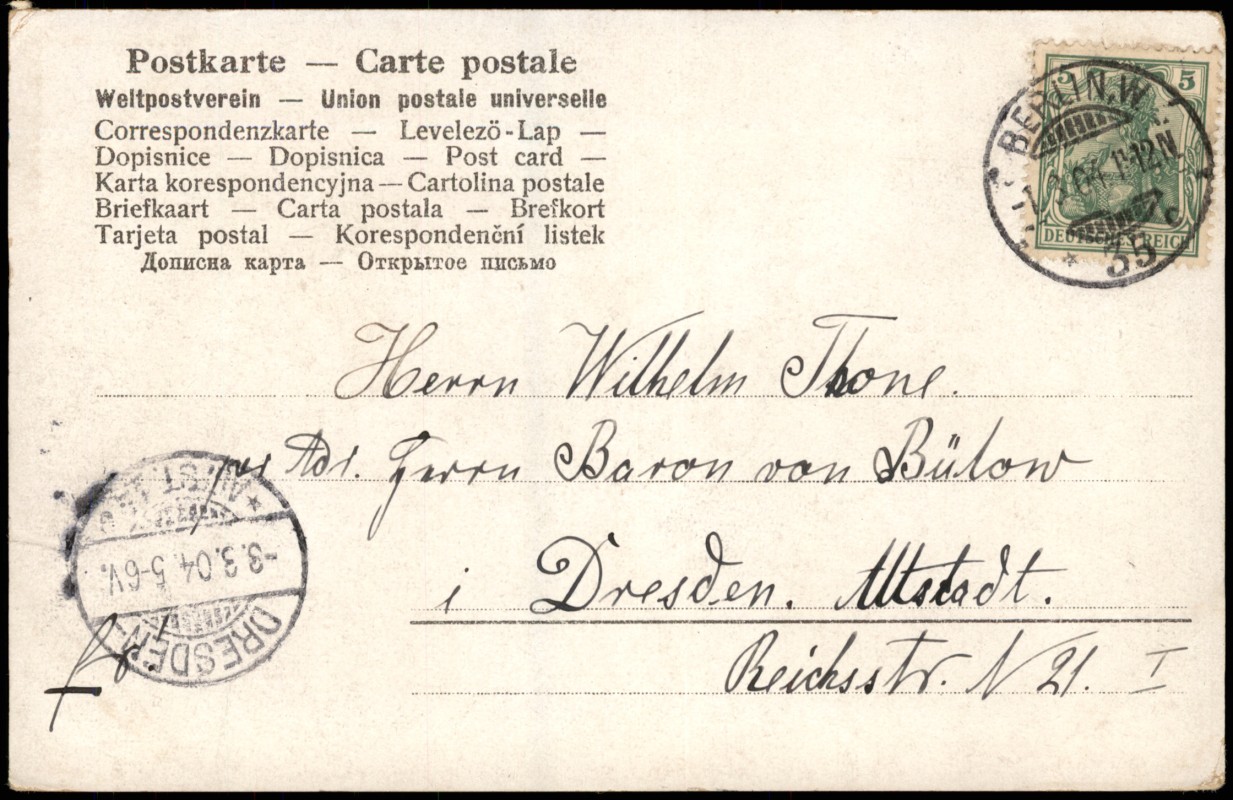 Postkarte — Carte postale
Weltpostverein — Union postale universelle
Correspondenzkarte — Levelező-Lap —
Dopisnice — Dopisnica — Post card —
Karta korespondencyjna — Cartolina postale
Briefkaart — Carta postala — Brefkort
Tarjeta postal — Korespondenční listek
Дописна карта — Открытое письмо
5 5
DEUTSCHES REICH
BERLIN, W.
04. 11-12N.
* 35 c
Herrn Wilhelm Thone.
Adr. Herrn Baron von Bülow
i Dresden. Altstadt.
Reichsstr. N 21. I
DRESDEN-
-3.3.04. 5-6V.
ALTST.